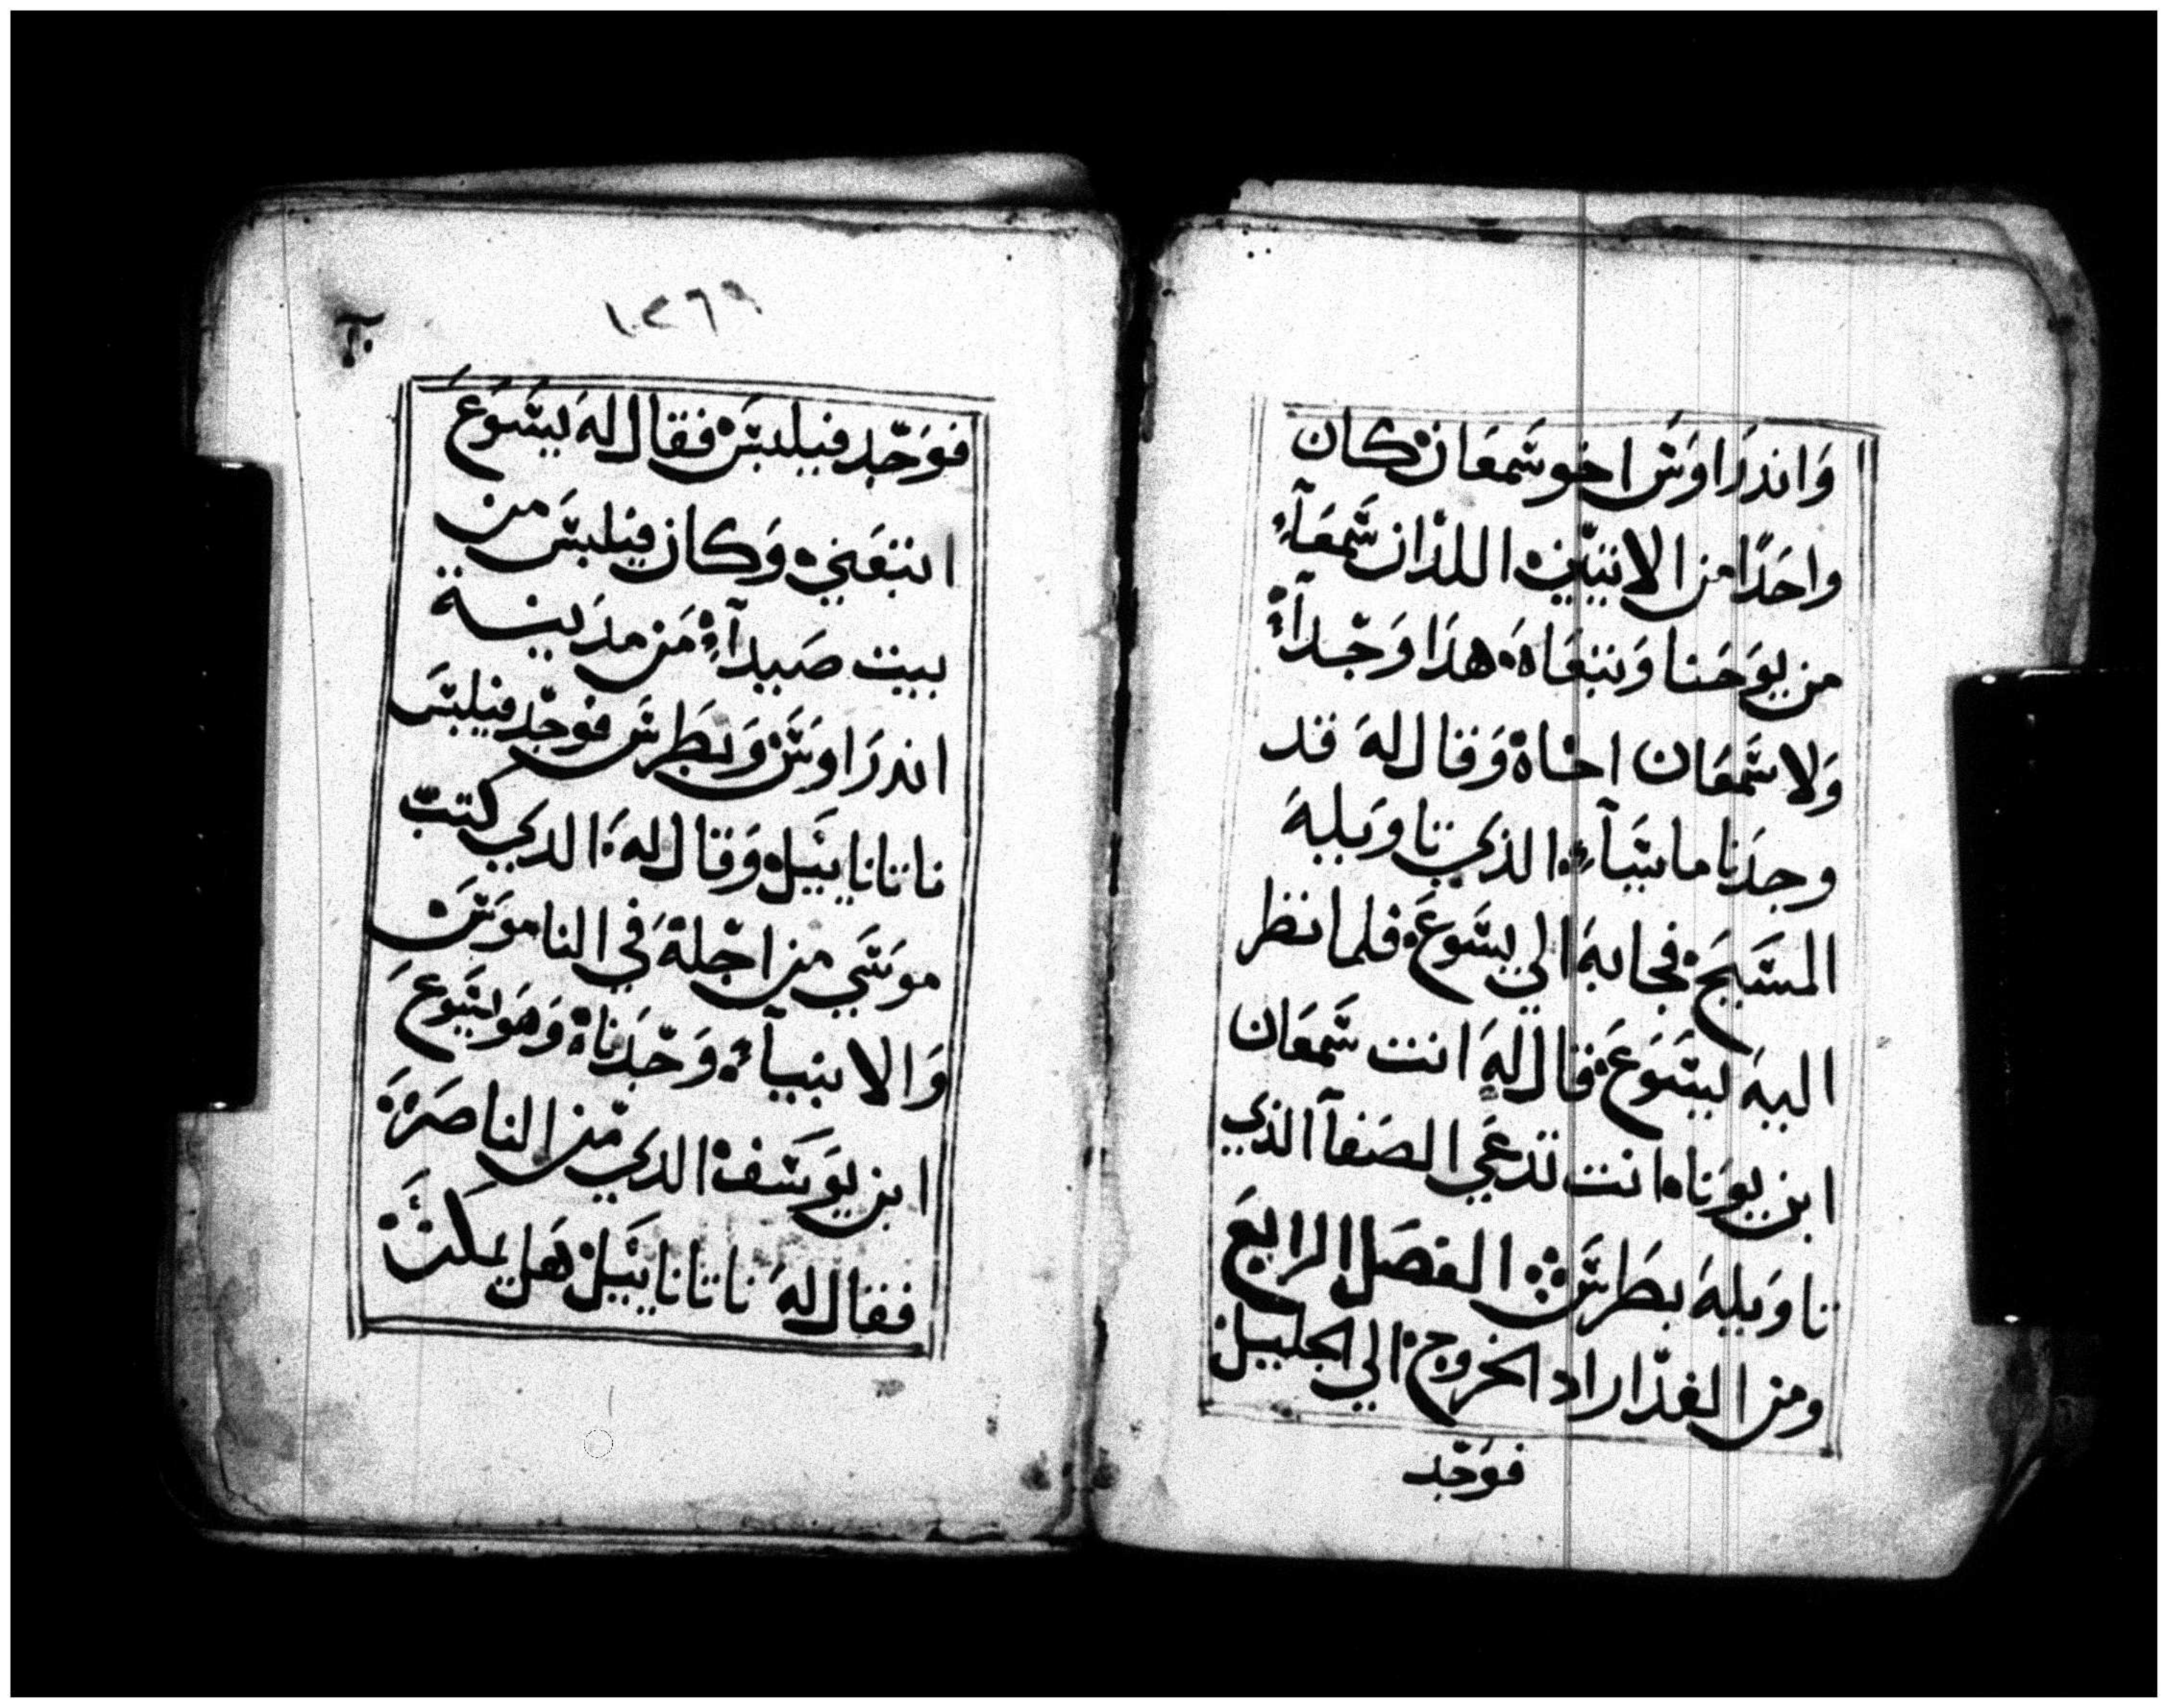 وَاندرَاوَسَ اخو شمعَان كان
واحَدًا من الاثنَيّن اللذان سَمعَآءِ
من يوَحَنا وَتبَعَاهَ هذَا وَجّدآءً
وَلا سَمَعَان اخَاهْ وَقال لهَ قد
وجدَنا ماسَيآءِ الذي تاوَيلهَ
المسَيحَ فجابهَ الي يسَوعَ فلما نظر
اليهَ ليسَوَعَ قال لهٍ انت سَمعَان
ابن يوَناه انت تدعَي الصَفآ الذي
تاوَيلهَ بطَرسَ الفصَل الرابعَ
ومن الغدّ اراد الخروجْ الي الجليلْ
فوَجّد
١٢٦٩
فوَجّد فيلبسَ فقال لهَ ليسَوَعَ
اتبَعَني وَكان فيلبسَ من
بيت صَيدآءِ مَن مدَينة
اندرَاوَسَ وَبطَرسَ فوَجّد فيلبسَ
ناتانايَيل وَقال لهَ الدَي كتبّ
موَسَي من اجّلهَ في الناموَسَ
وَالانبيآءَ وَجّدَناهْ وَهوَ ليسَوعَ
ابن يوَسَف الدَي مّن الناصَرَةَ
فقال لهَ ناتانايَيل هَل يمكنَ